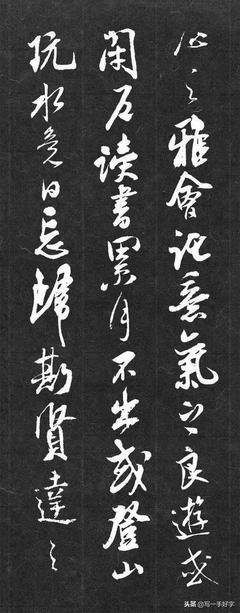 心之雅會託意氣之良遊或
閉戶读書累月不出或登山
玩水竟日忘歸斯賢達之
头条 @写一手好字